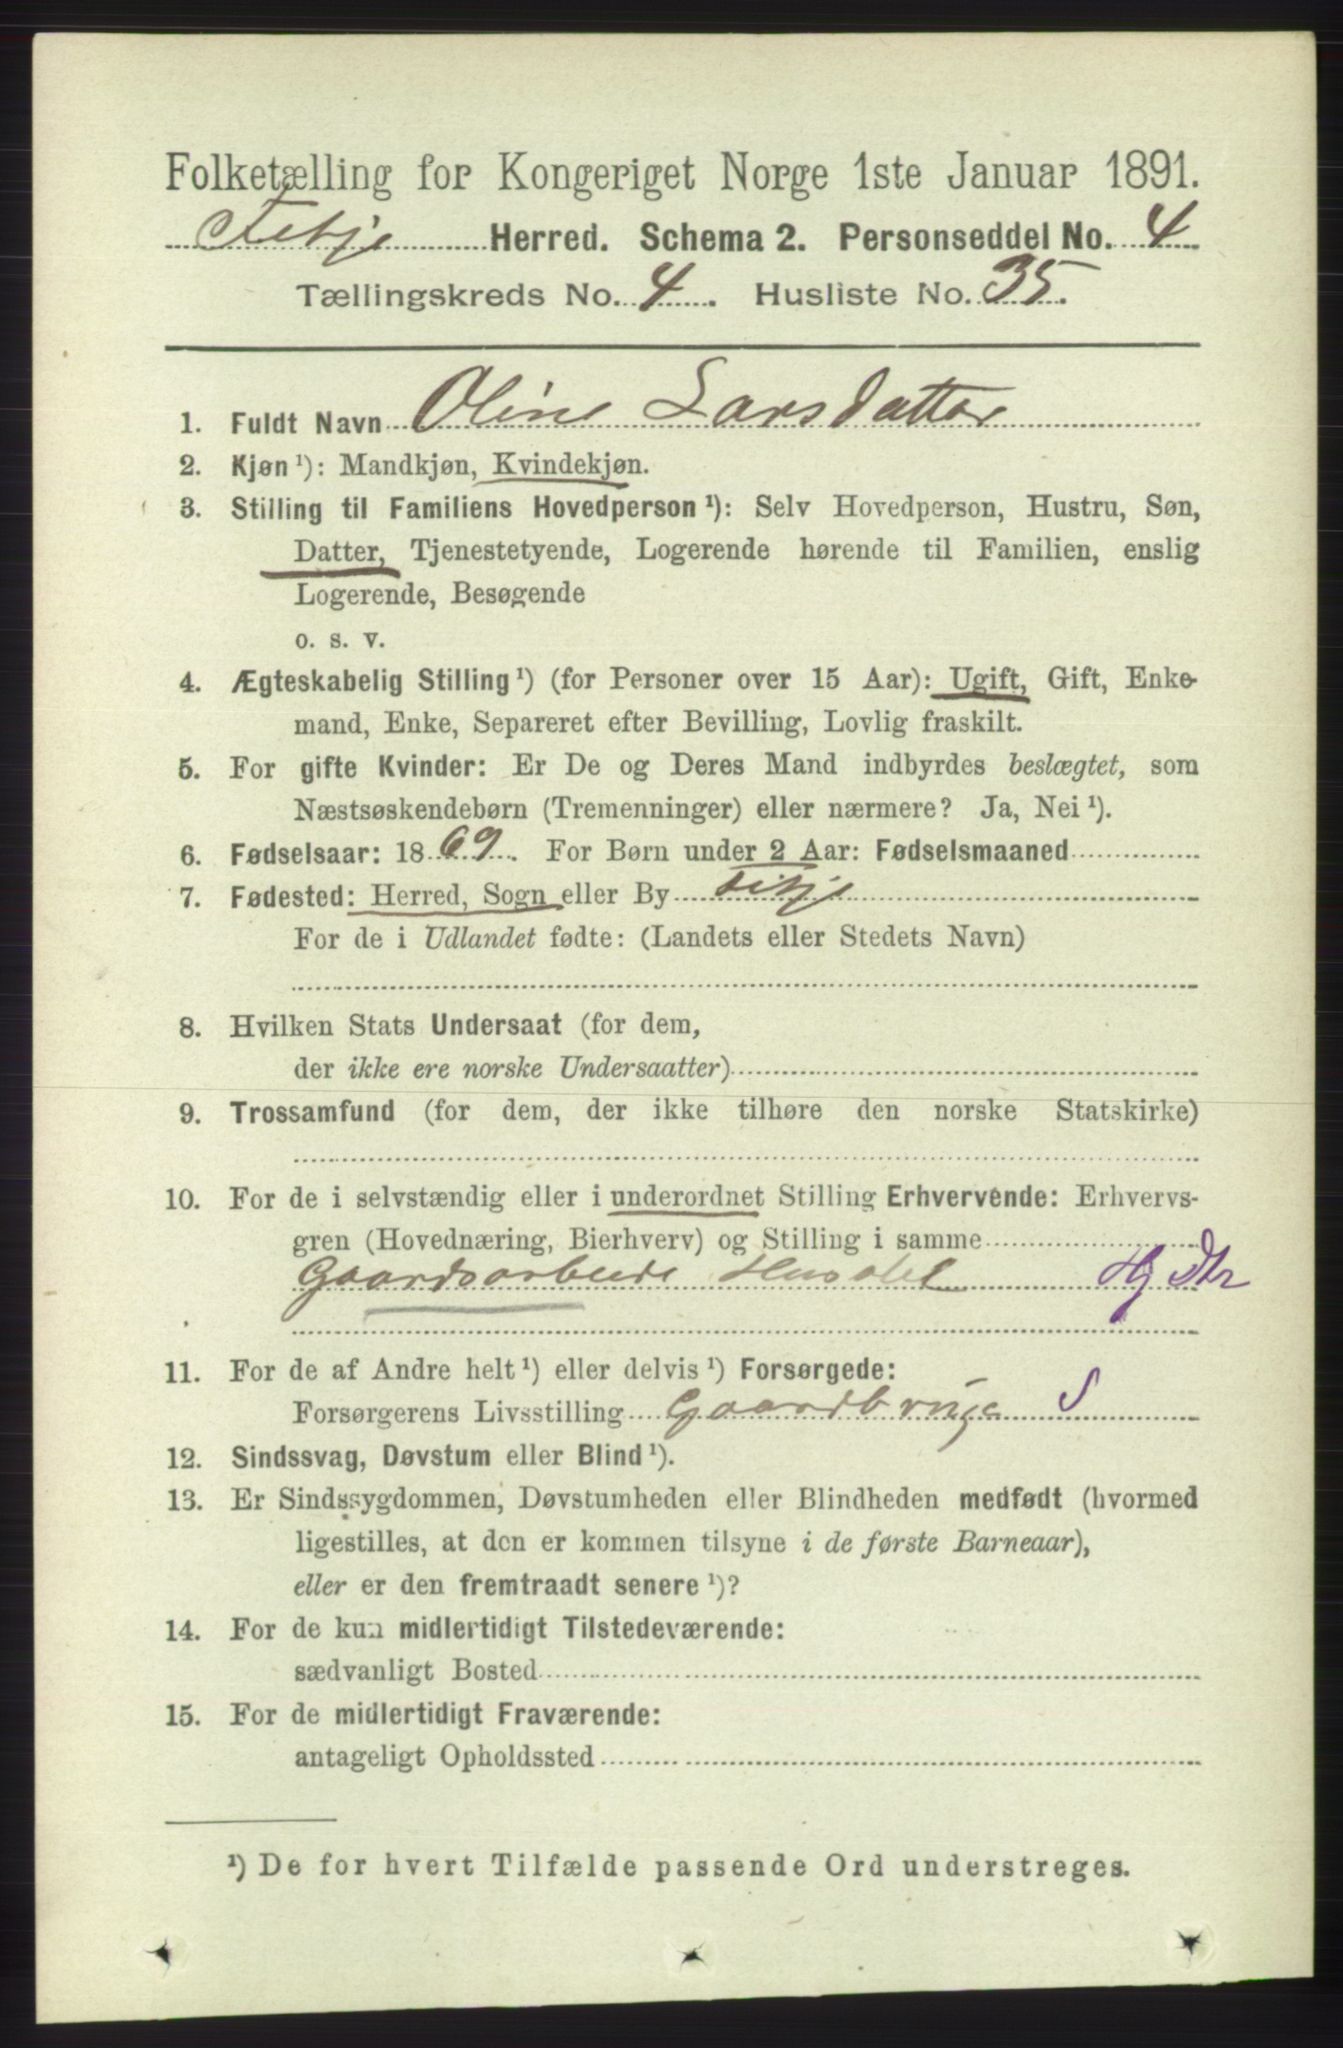 Folketælling for Kongeriget Norge 1ste Januar 1891.
Fitje Herred. Schema 2. Personseddel No. 4
Tællingskreds No. 4. Husliste No. 35.
1. Fuldt Navn Oline Larsdatter
2. Kjøn ¹): Mandkjøn, Kvindekjøn.
3. Stilling til Familiens Hovedperson ¹): Selv Hovedperson, Hustru, Søn,
Datter, Tjenestetyende, Logerende hørende til Familien, enslig
Logerende, Besøgende
o. s. v.
4. Ægteskabelig Stilling ¹) (for Personer over 15 Aar): Ugift, Gift, Enke-
mand, Enke, Separeret efter Bevilling, Lovlig fraskilt.
5. For gifte Kvinder: Er De og Deres Mand indbyrdes beslægtet, som
Næstsøskendebørn (Tremenninger) eller nærmere? Ja, Nei ¹).
6. Fødselsaar: 1869. For Børn under 2 Aar: Fødselsmaaned
7. Fødested: Herred, Sogn eller By Fitje
For de i Udlandet fødte: (Landets eller Stedets Navn)
8. Hvilken Stats Undersaat (for dem,
der ikke ere norske Undersaatter)
9. Trossamfund (for dem, der ikke tilhøre den norske Statskirke)
10. For de i selvstændig eller i underordnet Stilling Erhvervende: Erhvervs-
gren (Hovednæring, Bierhverv) og Stilling i samme
Gaardsarbeide Husstel Hj Dtr
11. For de af Andre helt ¹) eller delvis ¹) Forsørgede:
Forsørgerens Livsstilling Gaardbruge S
12. Sindssvag, Døvstum eller Blind ¹).
13. Er Sindssygdommen, Døvstumheden eller Blindheden medfødt (hvormed
ligestilles, at den er kommen tilsyne i de første Barneaar),
eller er den fremtraadt senere ¹)?
14. For de kun midlertidigt Tilstedeværende:
sædvanligt Bosted
15. For de midlertidigt Fraværende:
antageligt Opholdssted
¹) De for hvert Tilfælde passende Ord understreges.